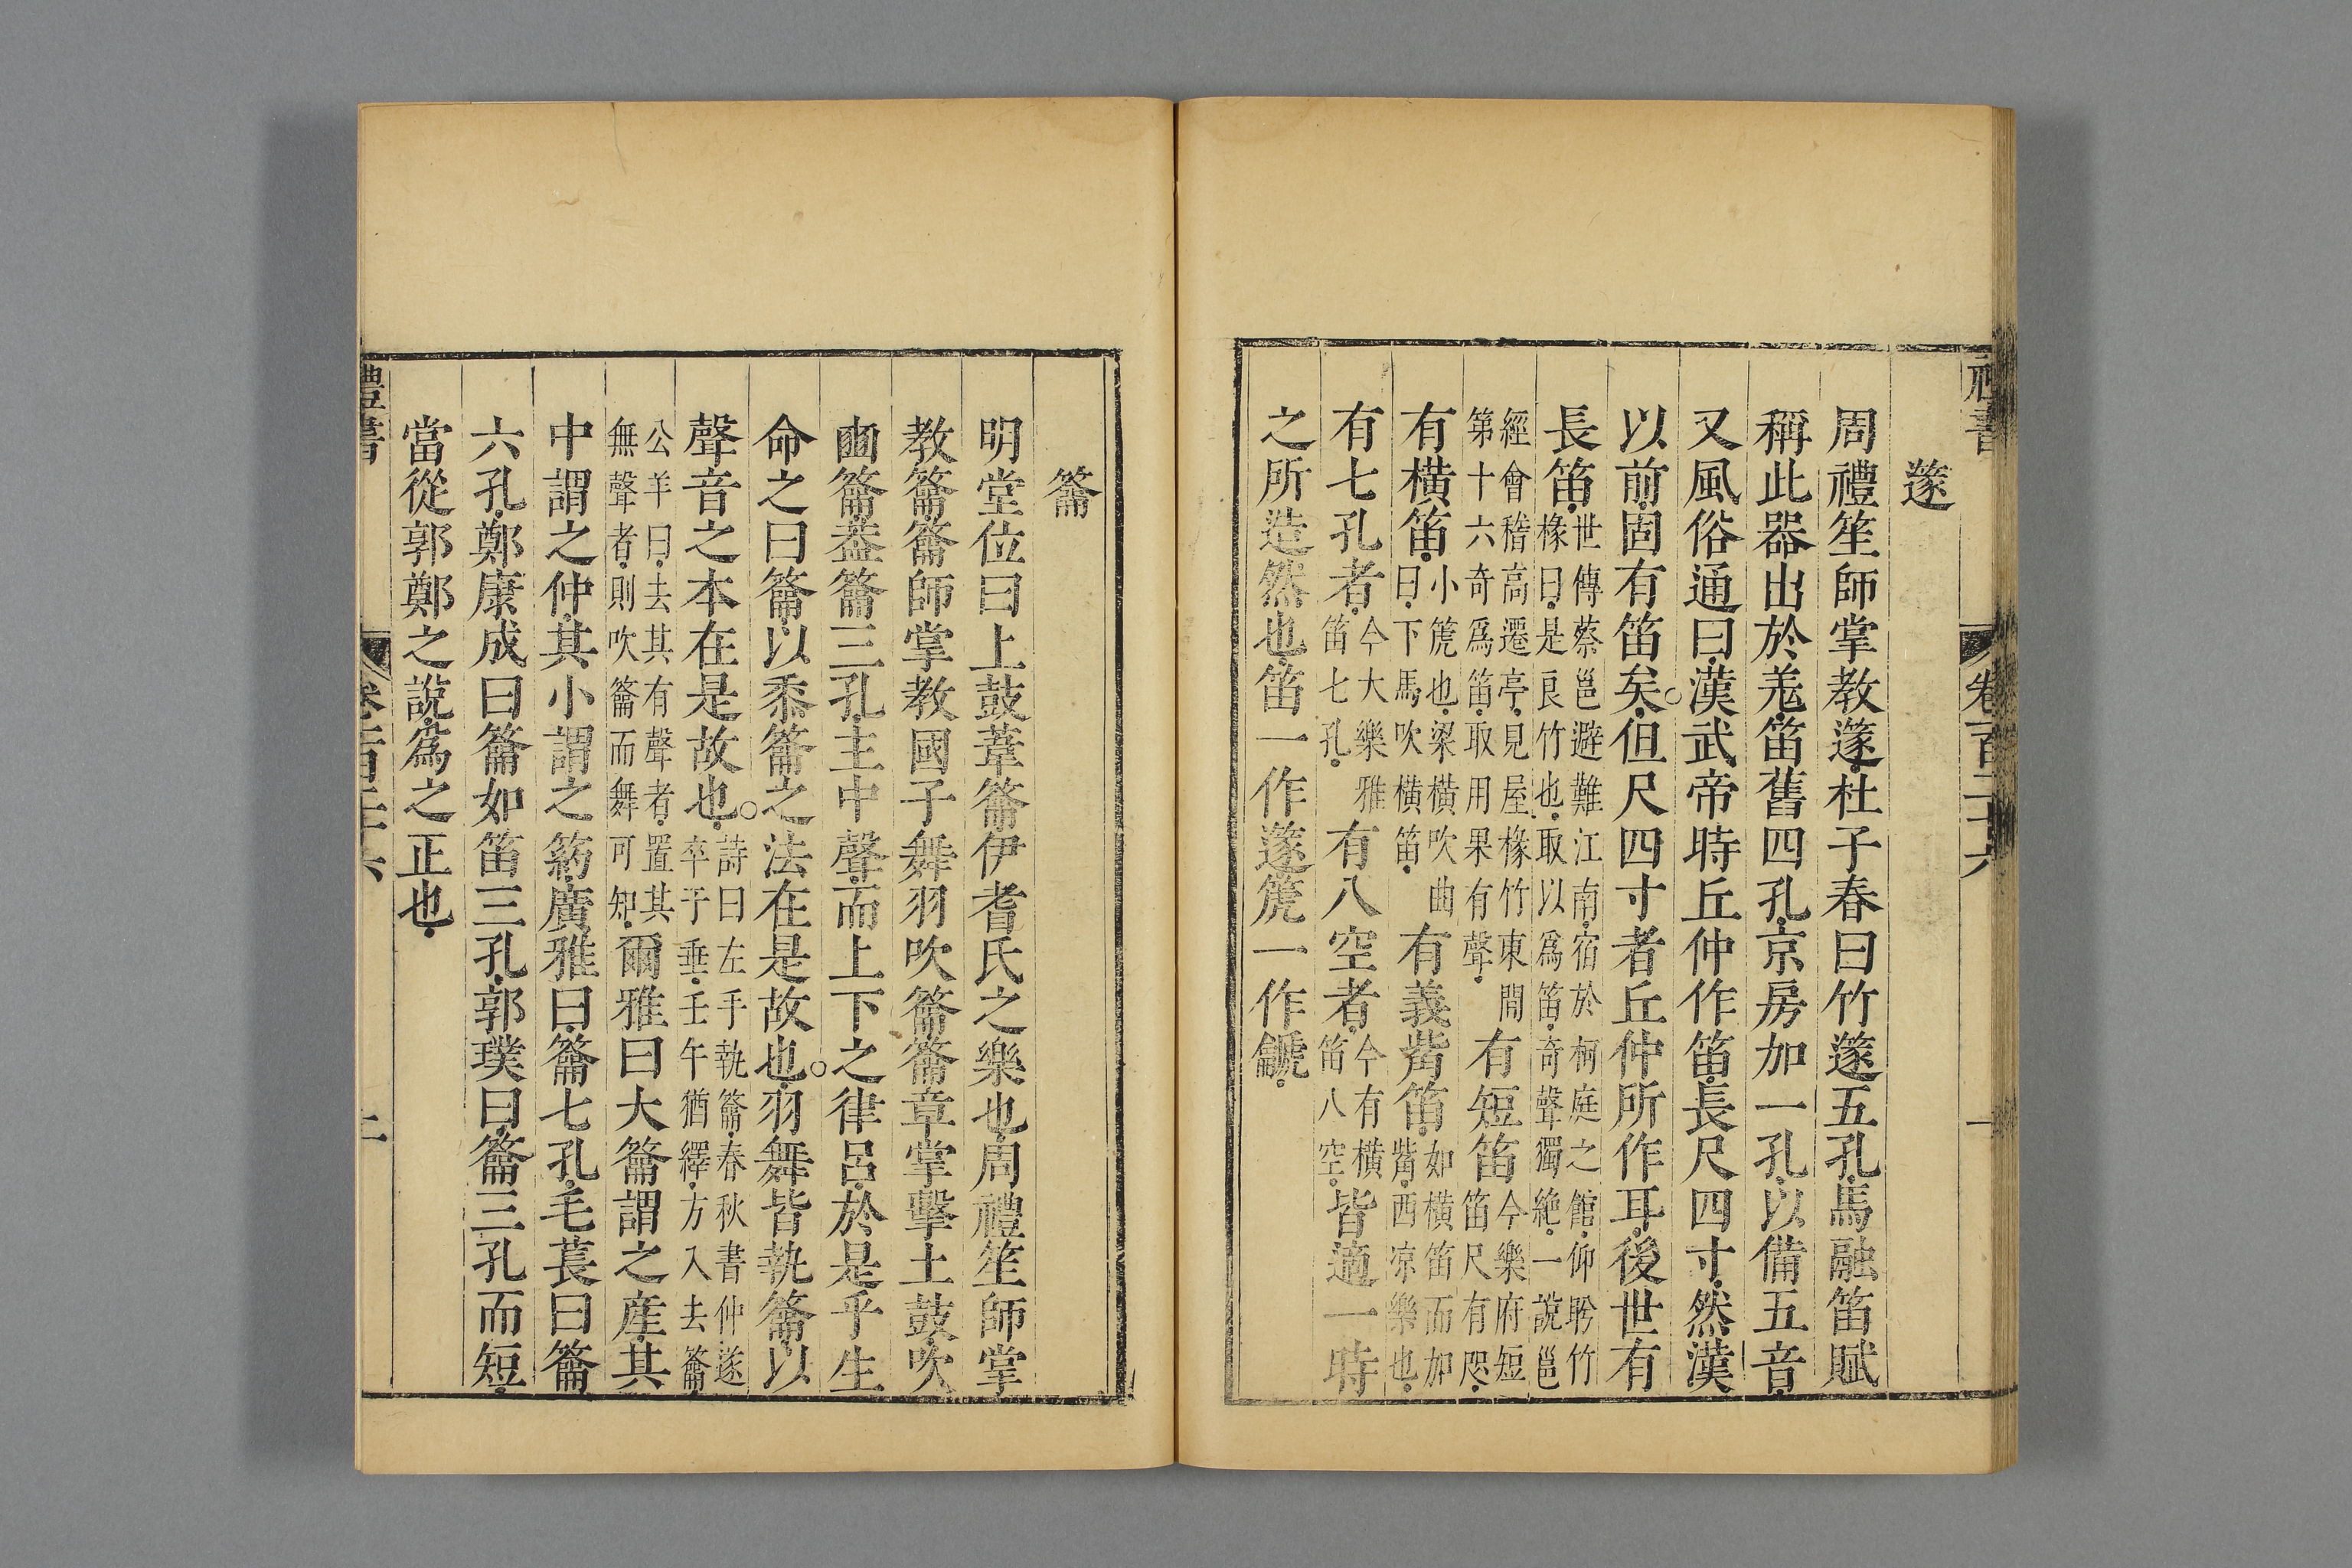 禮書
卷百二十六
一
篴
周禮笙師掌教篴杜子春曰竹篴五孔馬融笛賦
稱此器出於羗笛舊四孔京房加一孔以備五音
又風俗通曰漢武帝時丘仲作笛長尺四寸然漢
以前固有笛矣但尺四寸者丘仲所作耳後世有
長笛世傳蔡邕避難江南宿於柯庭之館仰眝竹
椽曰是良竹也取以爲笛奇聲獨絶一說邕
經會稽高遷亭見屋椽竹東間
第十六奇爲笛取用果有聲有短笛今樂府短
笛尺有咫
有橫笛小箎也梁橫吹曲
曰下馬吹橫笛有義觜笛如橫笛而加
觜西凉樂也
有七孔者今大樂雅
笛七孔有八空者今有橫
笛八空皆適一時
之所造然也笛一作篴箎一作龥
籥
明堂位曰上鼓葦籥伊耆氏之樂也周禮笙師掌
教籥籥師掌教國子舞羽吹籥籥章掌擊土鼓吹
豳籥葢籥三孔主中聲而上下之律呂於是乎生
命之曰籥以黍籥之法在是故也羽舞皆執籥以
聲音之本在是故也詩曰左手執籥春秋書仲遂
卒于垂壬午猶繹方入去籥
公羊曰去其有聲者置其
無聲者則吹籥而舞可知爾雅曰大籥謂之産其
中謂之仲其小謂之箹廣雅曰籥七孔毛萇曰籥
六孔鄭康成曰籥如笛三孔郭璞曰籥三孔而短
當從郭鄭之說爲之正也
禮書
卷百二十六
二